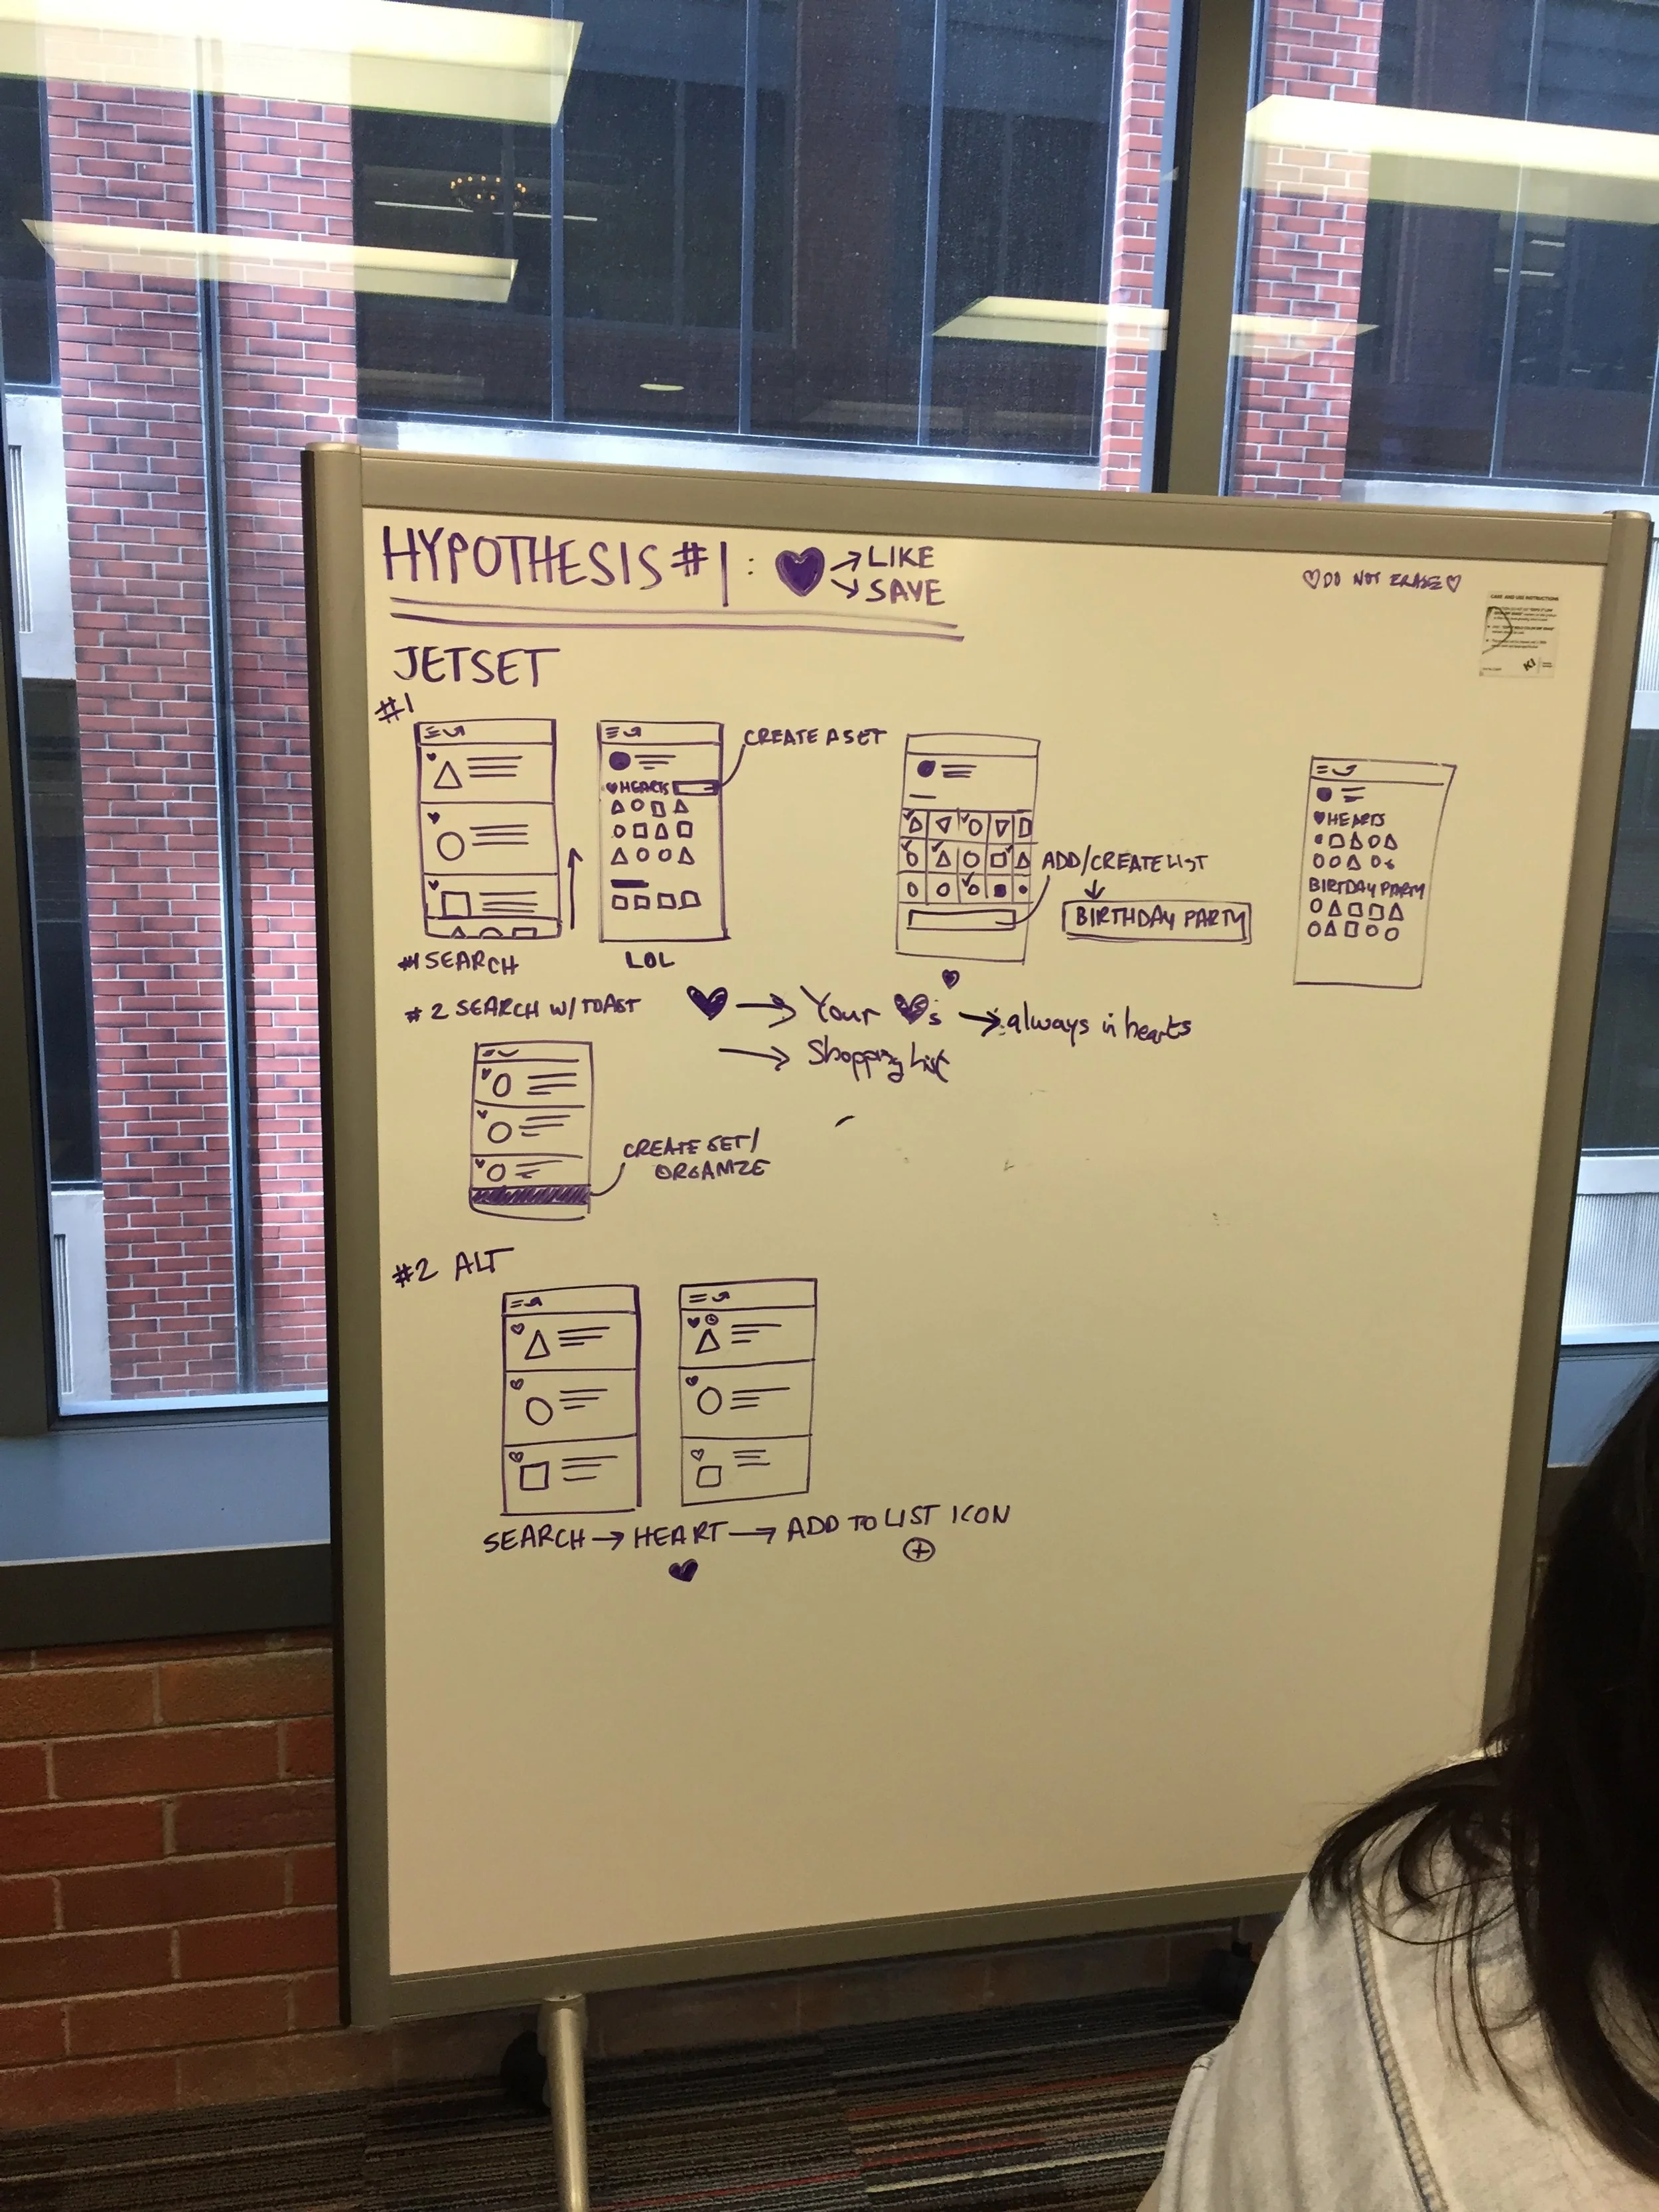 HYPOTHESIS #1: ♥ → LIKE
↘ SAVE
♡ DO NOT ERASE ♡
CARE AND USE INSTRUCTIONS
KI
JETSET
#1
CREATE A SET
♥ HEARTS
ADD/CREATE LIST
↓
BIRTHDAY PARTY
♥ HEARTS
BIRTDAY PARTY
#1 SEARCH
LOL
#2 SEARCH W/ TOAST
♥ → Your ♥s → always in hearts
→ Shopping List
CREATE SET/
ORGANIZE
#2 ALT
SEARCH → HEART → ADD TO LIST ICON
♥ ⊕